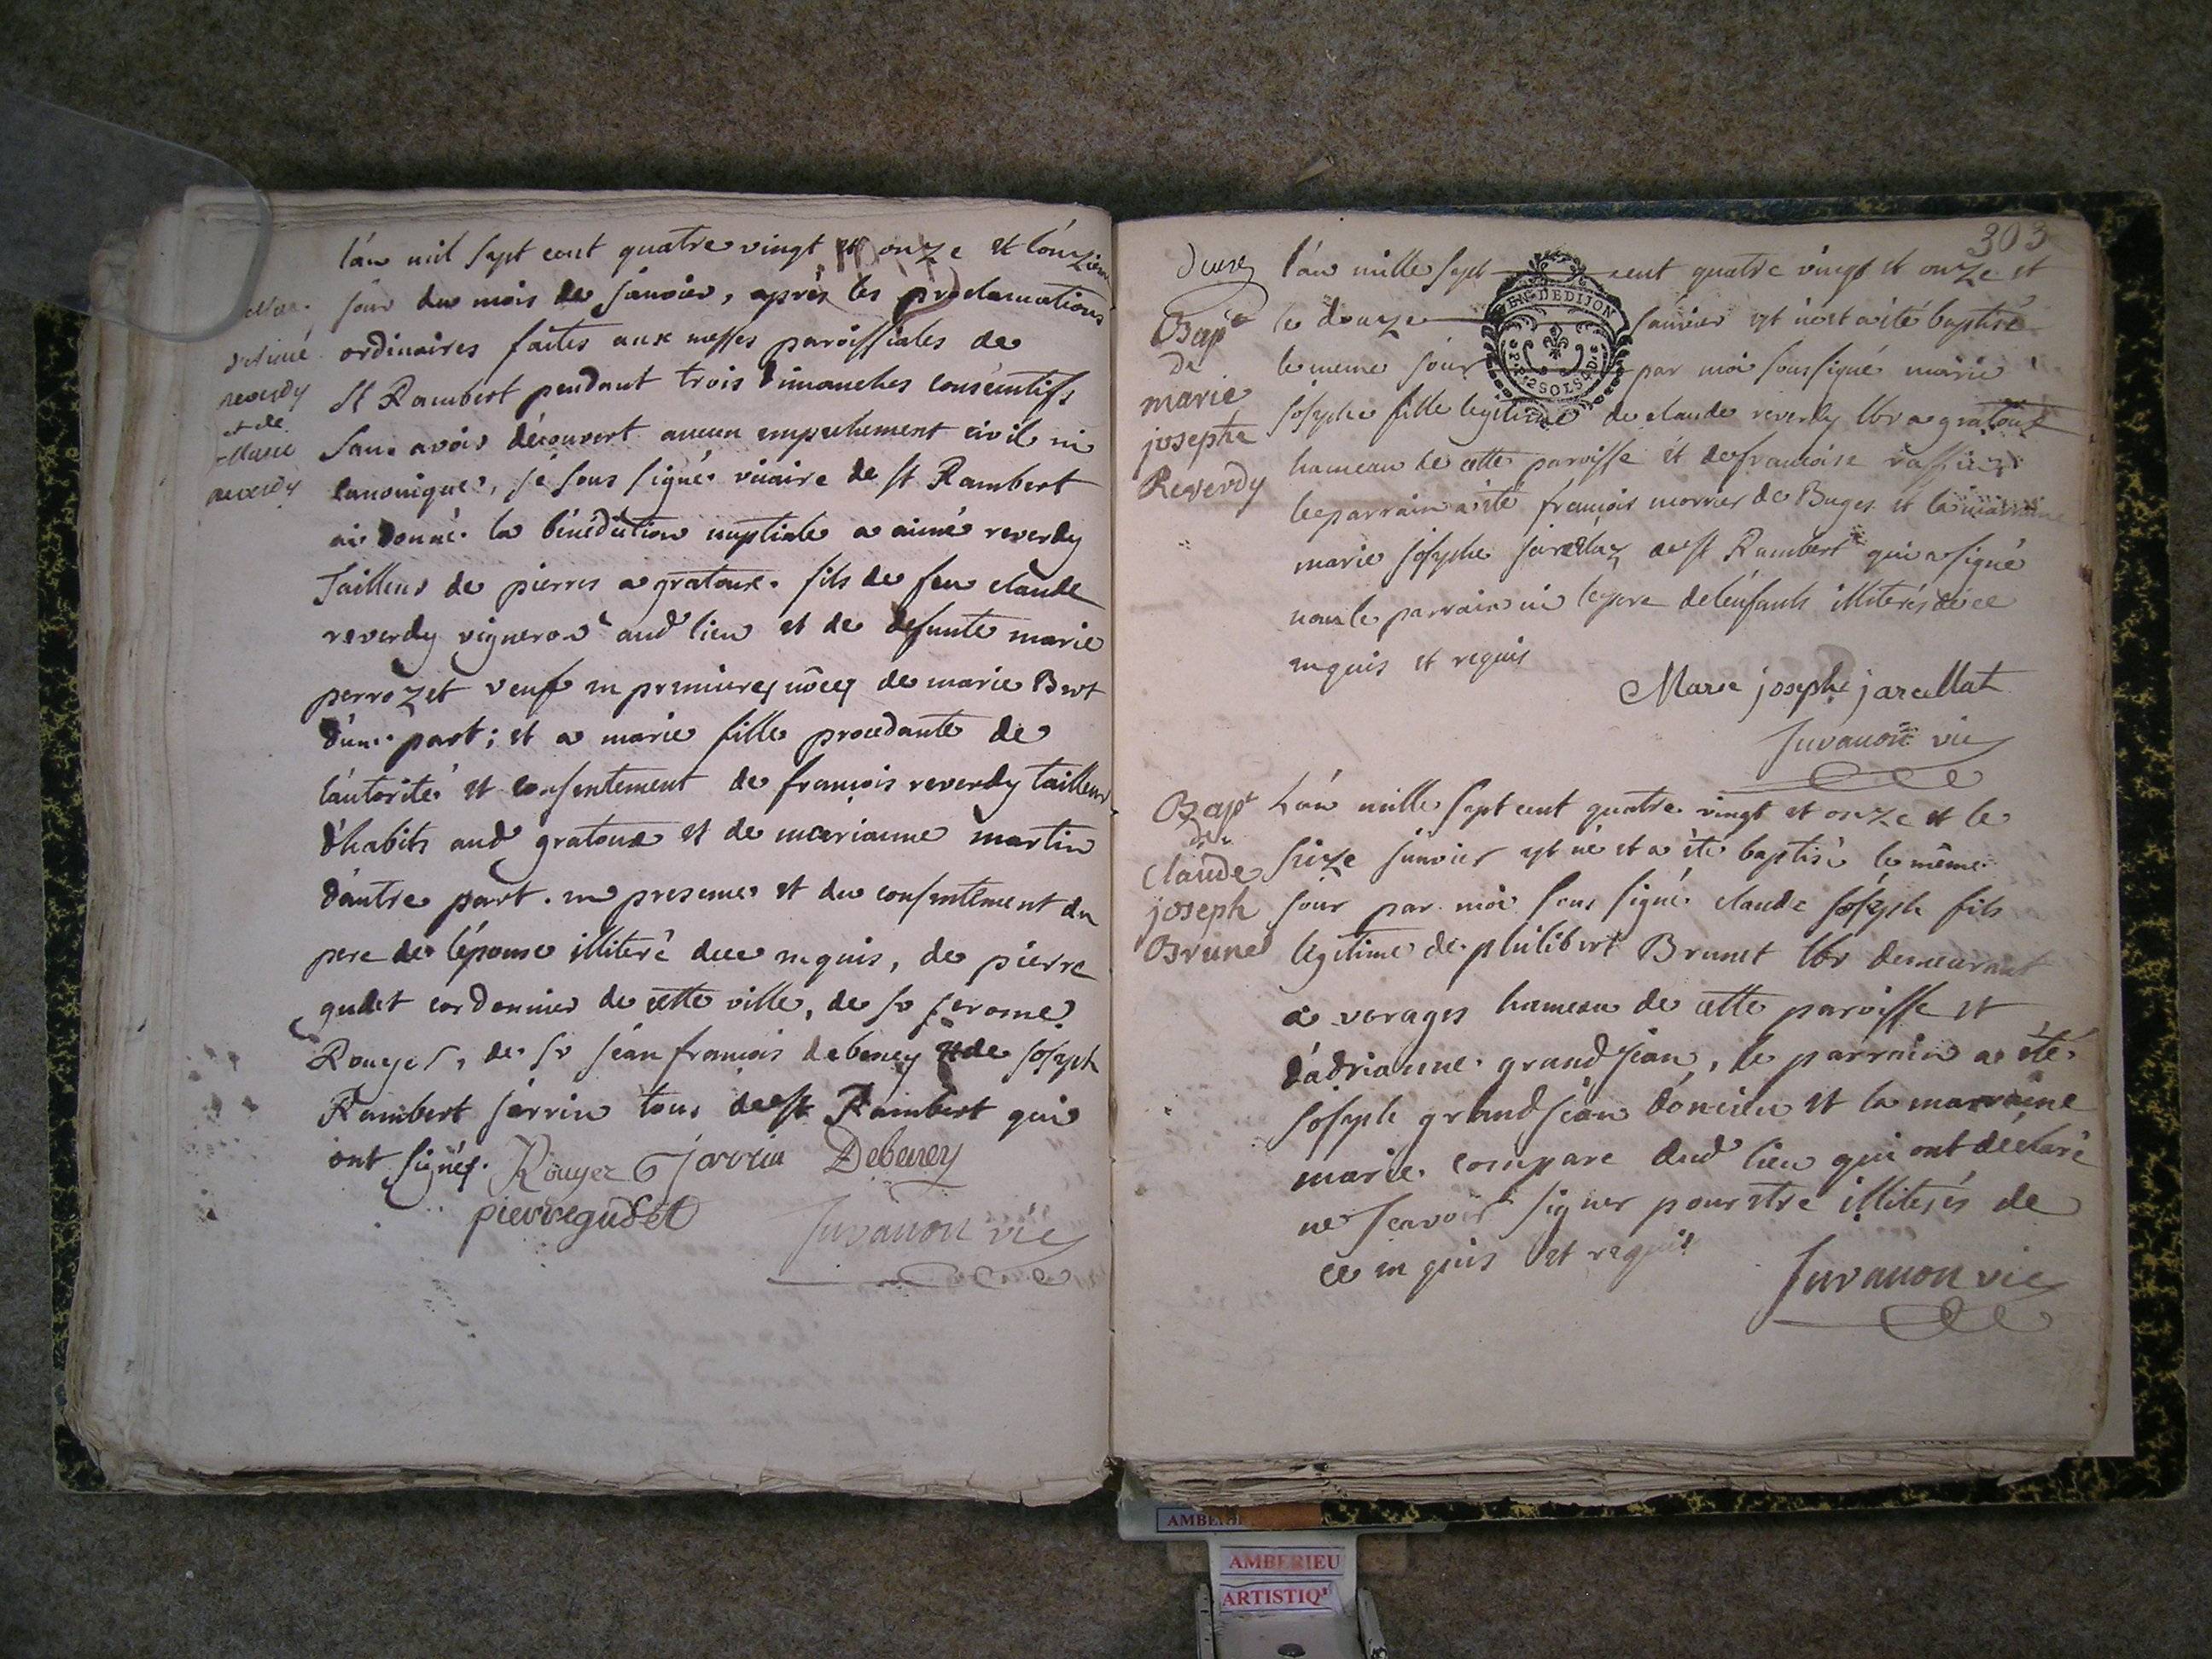 l'an mil sept cent quatre vingt et onze et l'onzieme
jour du mois de janvier, après les proclamations
ordinaires faites aux messes paroissiales de
St Rambert pendant trois dimanches consécutifs
sans avoir découvert aucun empechement civil ni
canonique, je sous signé vicaire de st Rambert
ai donné la bénédiction nuptiale a aimé reverdy
tailleur de pierres a gratoux fils de feu claude
reverdy vigneron aud lieu et de defunte marie
perrozet veuf en premieres nôces de marie Bert
d'une part; et a marie fille procedante de
l'autorité et consentement de françois reverdy tailleur
d'habits aud gratoux et de marianne martin
d'autre part. en presence et du consentement du
pere de l'épouse illiteré dece enquis, de pierre
gudet cordonnier de cette ville, de sr jerome
Rouyer, de sr jean françois debeney et de joseph
Rambert jarrin tous de st Rambert qui
ont signés. Rouyer Jarrin Debeney
pierre gudet
Juvanon vic
d'aimé
reverdy
et de
Marie
reverdy
303
Bapt
de
marie
josephe
Reverdy
l'an mille sept cent quatre vingt et onze et
le douze janvier est né et a été baptisé
le meme jour par moi soussigné marie
josephe fille legitime de claude reverdy lbr a gratoux
hameau de cette paroisse et de francoise
le parrain a été françois morrier de Buges et la marraine
marie josephe de st Rambert qui a signé
non le parrain ni le pere de l'enfant illiterés de ce
enquis et requis
Marie josephe jarcellat
Juvanon vic
Bapt
de
claude
joseph
Brunet
L'an mille sept cent quatre vingt et onze et le
seize janvier est né et a été baptisé le même
jour par moi sous signé claude joseph fils
legitime de philibert Brunet lbr demeurant
à vorages hameau de cette paroisse et
d'adrianne grandjean, le parrain a été
joseph grandjean d'oncieu et la marraine
marie compare dud lieu qui ont déclaré
ne scavoir signer pour etre illiterés de
ce enquis et requis
Juvanon vic
GEN. DE DIJON
2 SOLS
AMBERIEU
ARTISTIQ